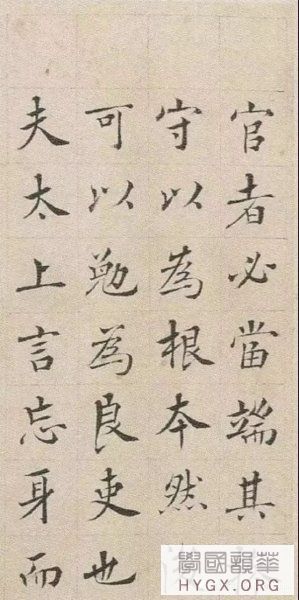 官者必當端其
守以為根本然
可以勉為良吏也
夫太上言忘身而
華韻國學
HYGX.ORG